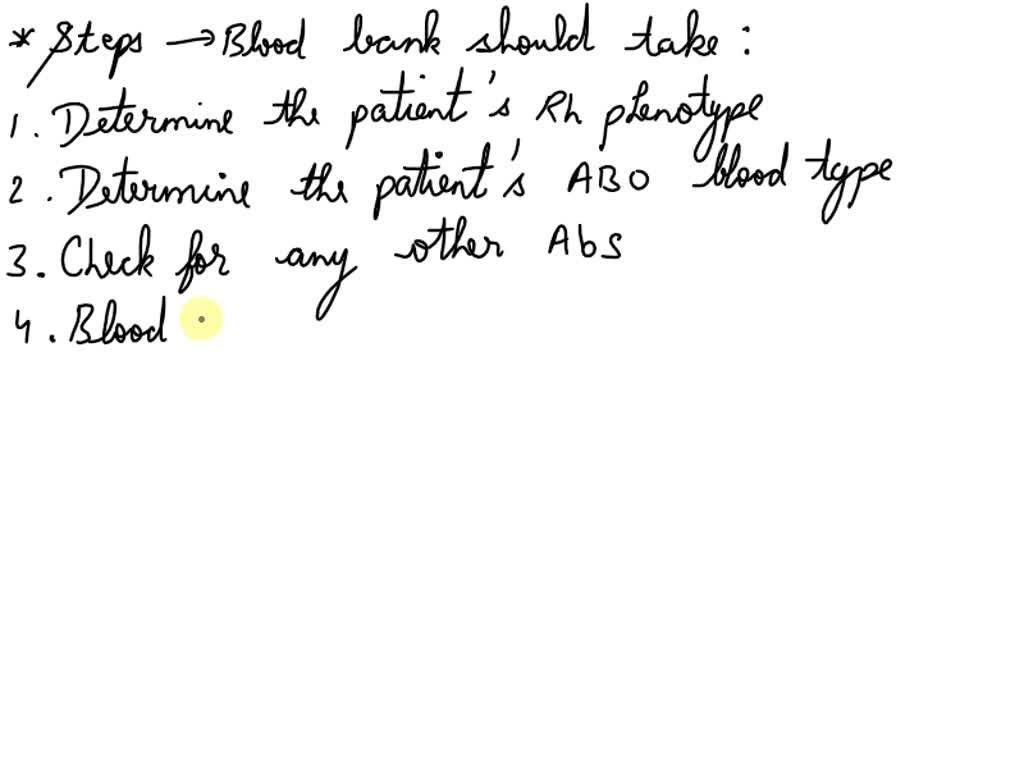 * Steps → Blood bank should take :
1. Determine the patient's Rh phenotype
2. Determine the patient's ABO blood type
3. Check for any other Abs
4. Blood